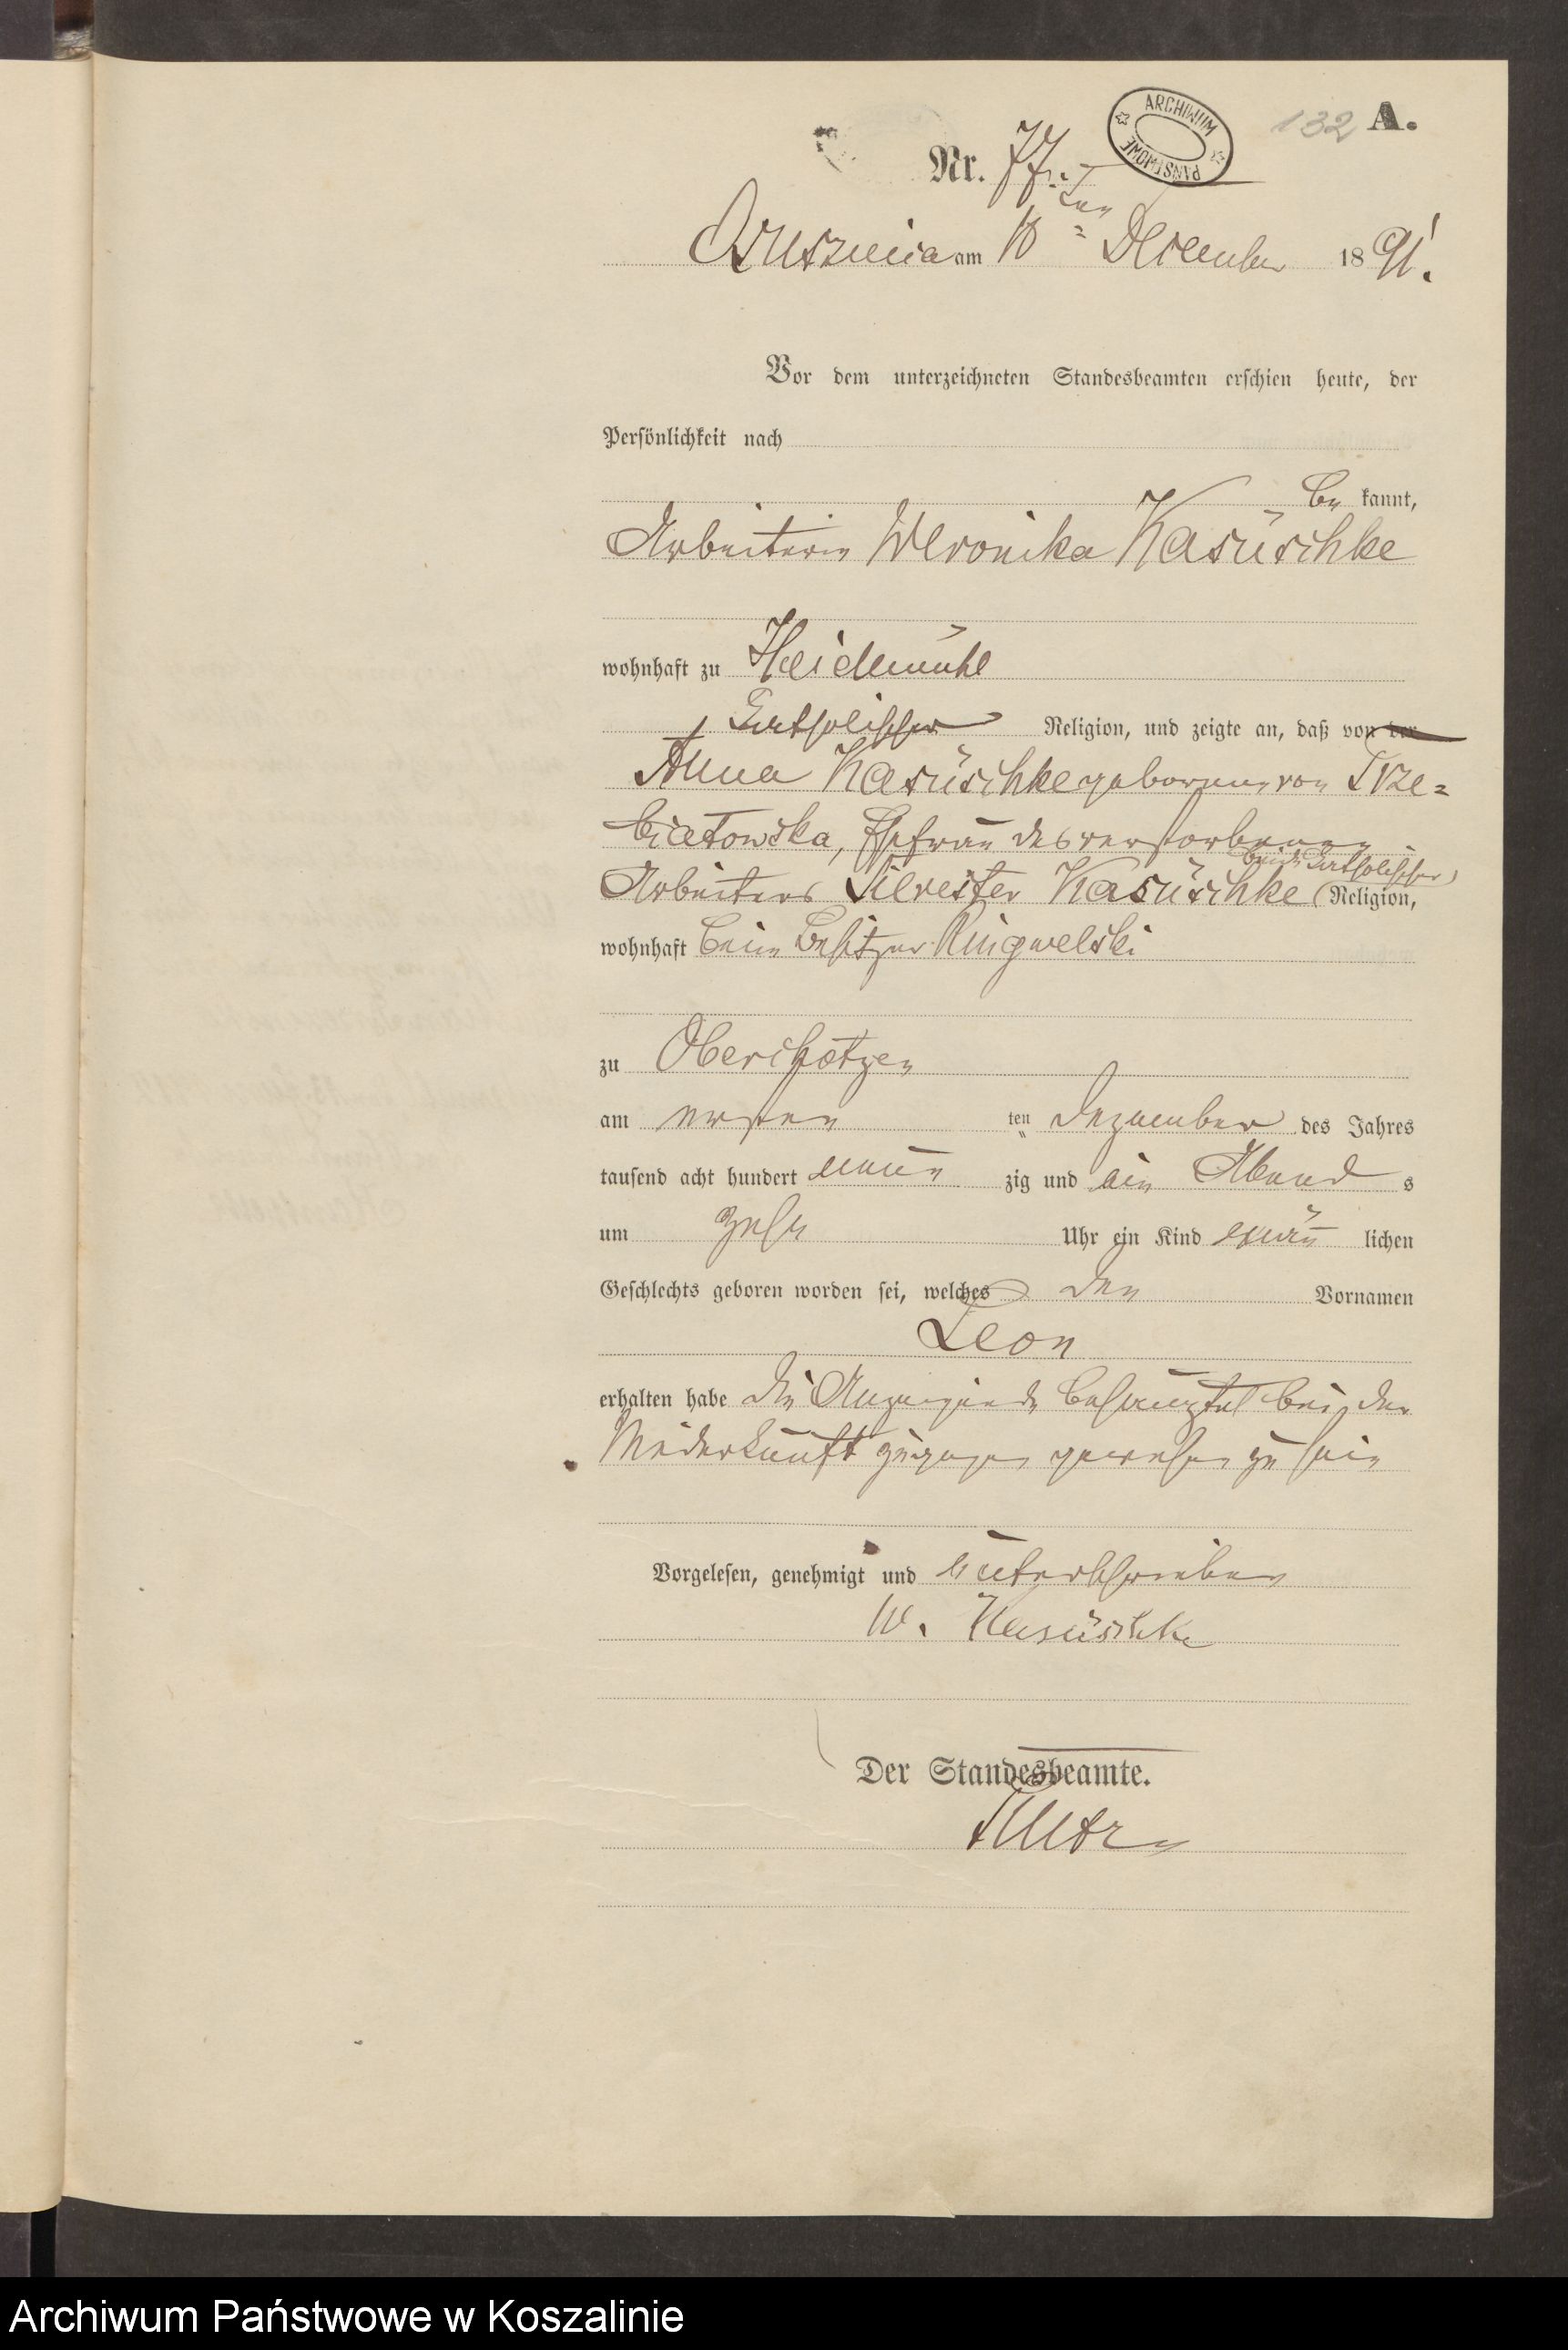 132 A.
ARCHIWUM PAŃSTWOWE
Nr. 77.
Bruszenica am 10 ten December 1891.
Vor dem unterzeichneten Standesbeamten erschien heute, der
Persönlichkeit nach
be kannt,
Arbeiterin Weronika Kasuschke
wohnhaft zu Heidemühl
katholischer Religion, und zeigte an, daß von der
Anna Kasuschke geborenen von Trze=
biatowska, Ehefrau des verstorbenen
beide katholischer
Arbeiters Silvester Kasuschke (Religion,
wohnhaft beim Besitzer Ringwelski
zu Oberschotzen
am ersten ten Dezember des Jahres
tausend acht hundert neun zig und ein Abend s
um zehn Uhr ein Kind männ lichen
Geschlechts geboren worden sei, welches den Vornamen
Leon
erhalten habe Die Anzeigende behauptet bei der
Niederkunft zugegen gewesen zu sein
Vorgelesen, genehmigt und unterschrieben
W. Kasuschke
Der Standesbeamte.
Archiwum Państwowe w Koszalinie